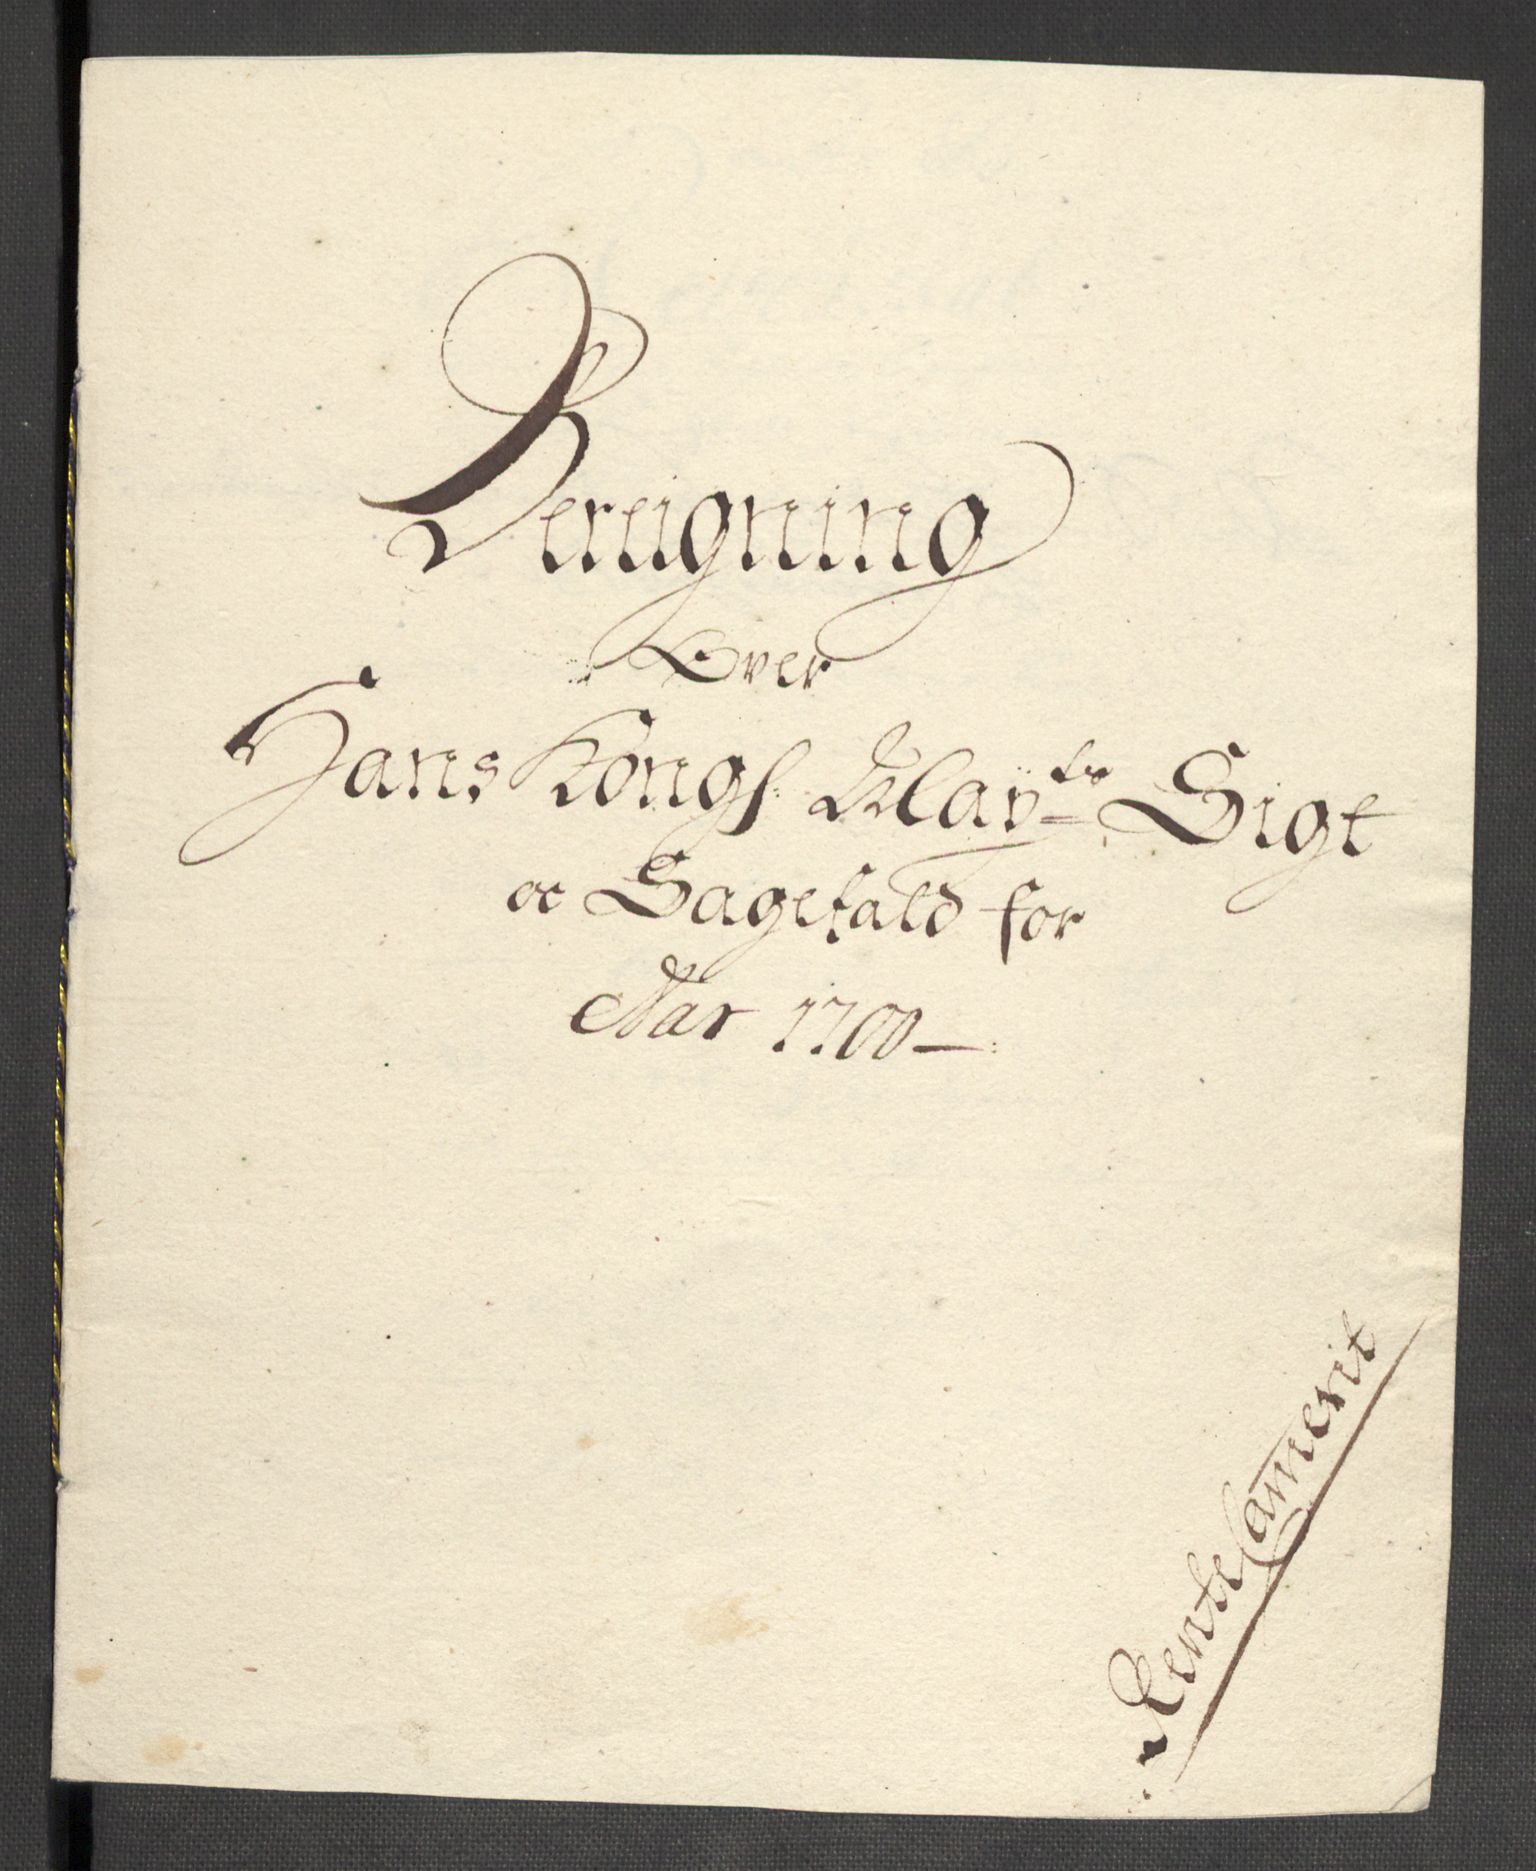 Bereigning
Over
Hans Kongl: Maÿ:tz Sigt
oc Sagefald for
Aar 1700 —
Rente Camerit